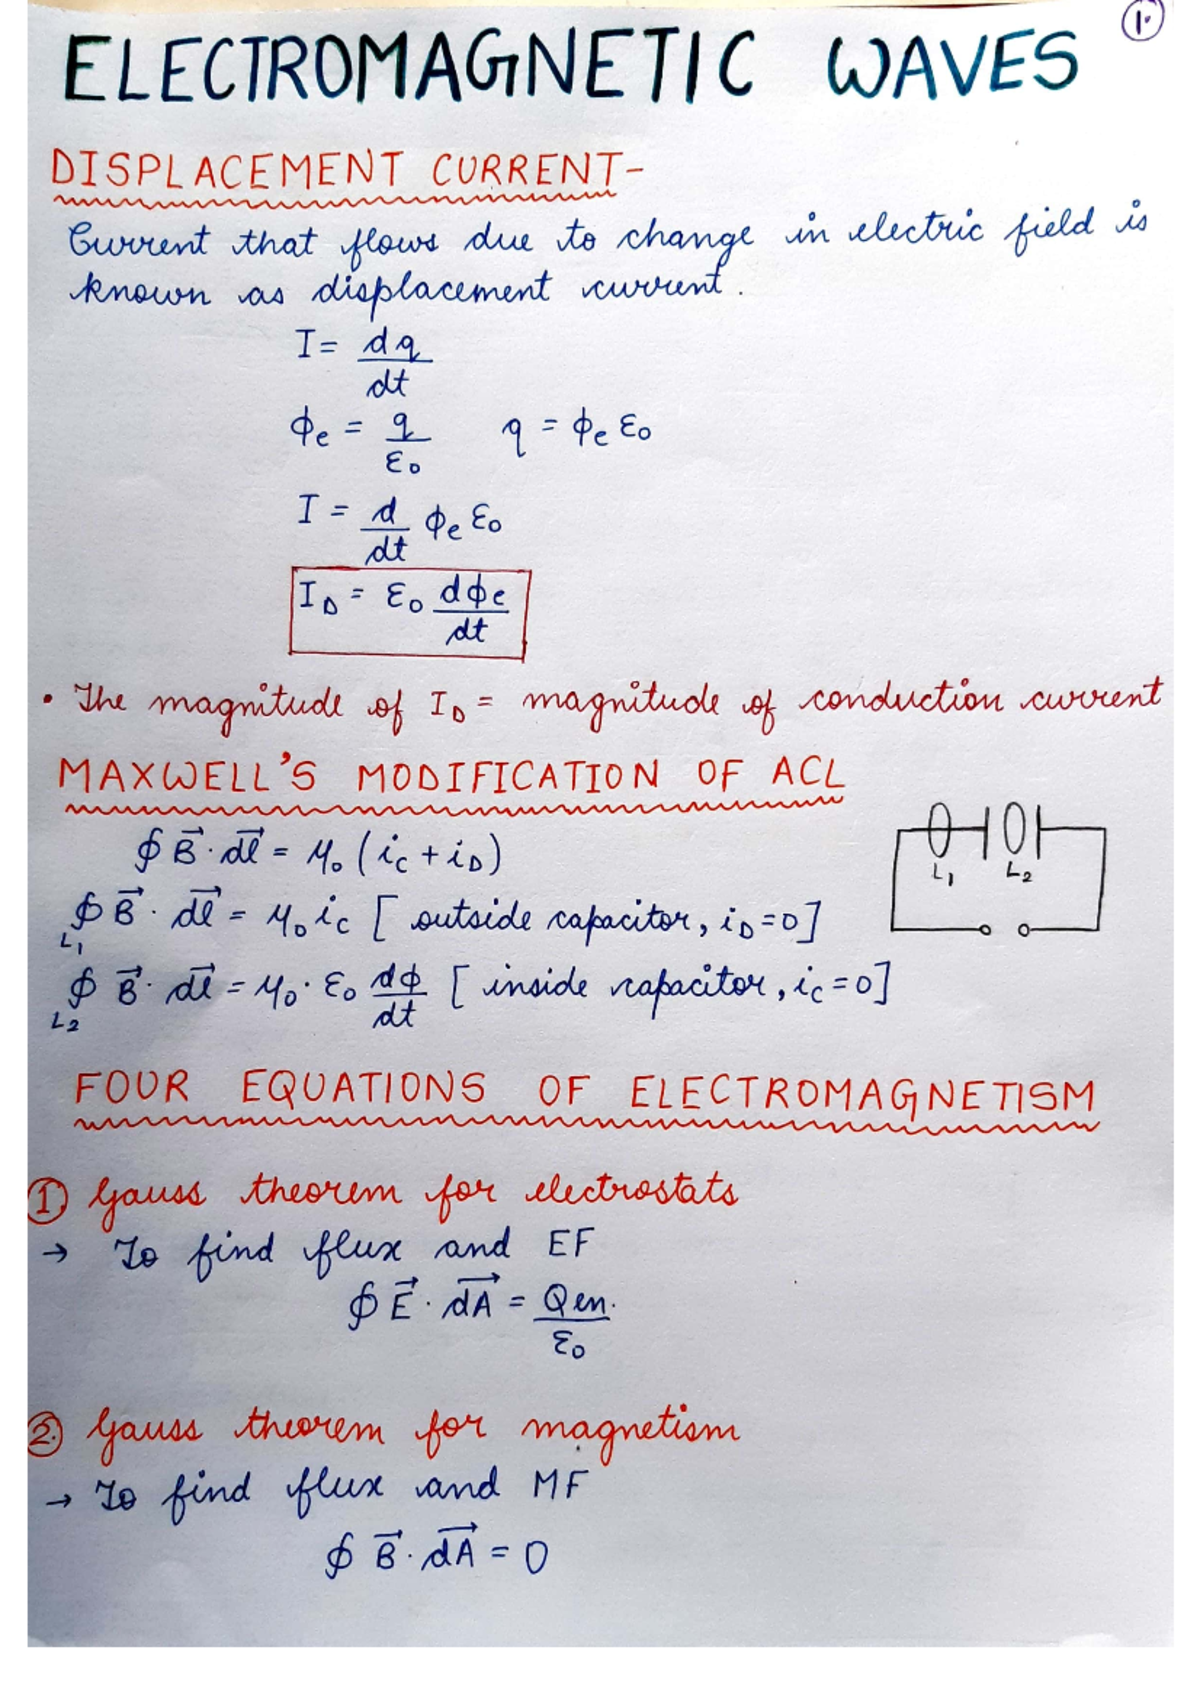 1.
ELECTROMAGNETIC WAVES
DISPLACEMENT CURRENT-
Current that flows due to change in electric field is
known as displacement current.
I = dq/dt
ϕe = q/ε0    q = ϕe ε0
I = d/dt ϕe ε0
ID = ε0 dϕe/dt
• The magnitude of ID = magnitude of conduction current
MAXWELL'S MODIFICATION OF ACL
∮ B⃗ · dl⃗ = μ0 (ic + iD)
∮L1 B⃗ · dl⃗ = μ0 ic [ outside capacitor, iD = 0]
∮L2 B⃗ · dl⃗ = μ0 · ε0 dϕ/dt [ inside capacitor, ic = 0]
L1 L2
FOUR EQUATIONS OF ELECTROMAGNETISM
① Gauss theorem for electrostats
→ To find flux and EF
∮ E⃗ · dA⃗ = Qen./ε0
②. Gauss theorem for magnetism
→ To find flux and MF
∮ B⃗ · dA⃗ = 0